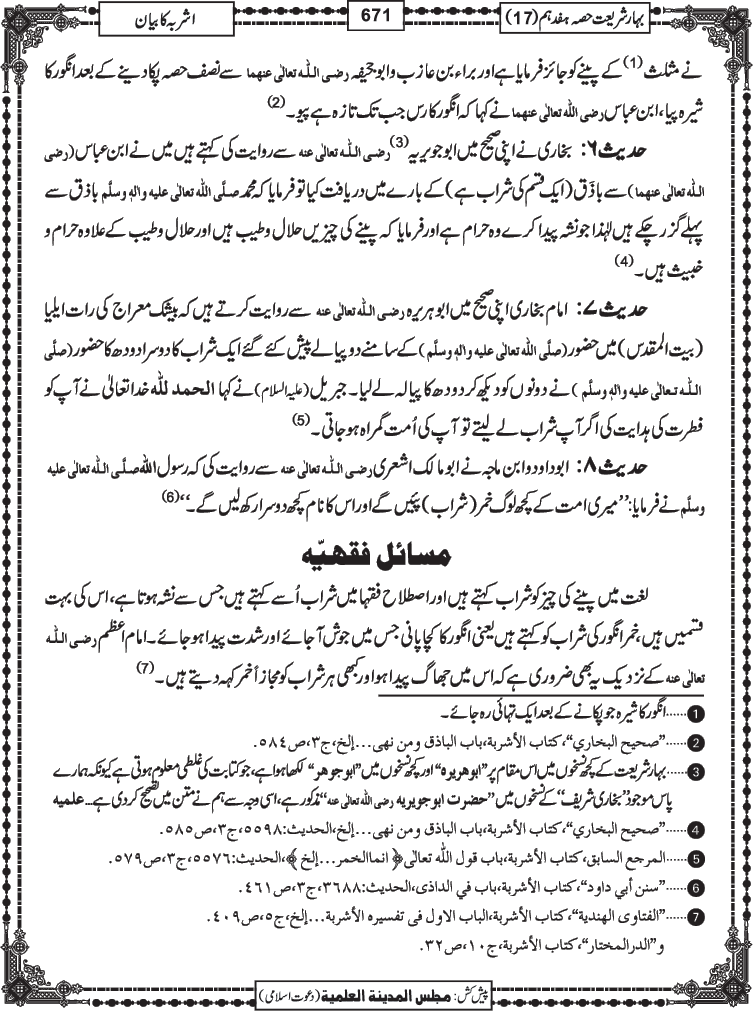 بہار شریعت حصہ ہفدہم (17)
671
اشربہ کا بیان
نے مثلث (1) کے پینے کو جائز فرمایا ہے اور براء بن عازب وابو جحیفہ رضی اللہ تعالیٰ عنہما سے نصف حصہ پکا دینے کے بعد انگور کا
شیرہ پیا، ابن عباس رضی اللہ تعالیٰ عنہما نے کہا کہ انگور کا رس جب تک تازہ ہے پیو۔ (2)
حدیث ۶: بخاری نے اپنی صحیح میں ابو جویریہ (3) رضی اللہ تعالیٰ عنہ سے روایت کی کہتے ہیں میں نے ابن عباس (رضی
اللہ تعالیٰ عنہما) سے باذَق (ایک قسم کی شراب ہے) کے بارے میں دریافت کیا تو فرمایا کہ محمد صلَّی اللہ تعالیٰ علیہ والہٖ وسلَّم باذق سے
پہلے گزر چکے ہیں لہٰذا جو نشہ پیدا کرے وہ حرام ہے اور فرمایا کہ پینے کی چیزیں حلال وطیب ہیں اور حلال وطیب کے علاوہ حرام و
خبیث ہیں۔ (4)
حدیث ۷: امام بخاری اپنی صحیح میں ابوہریرہ رضی اللہ تعالیٰ عنہ سے روایت کرتے ہیں کہ بیشک معراج کی رات ایلیا
(بیت المقدس) میں حضور (صلَّی اللہ تعالیٰ علیہ والہٖ وسلَّم) کے سامنے دو پیالے پیش کئے گئے ایک شراب کا دوسرا دودھ کا حضور (صلَّی
اللہ تعالیٰ علیہ والہٖ وسلَّم) نے دونوں کو دیکھ کر دودھ کا پیالہ لے لیا۔ جبریل (علیہ السلام) نے کہا الحمد للہ خدا تعالیٰ نے آپ کو
فطرت کی ہدایت کی اگر آپ شراب لے لیتے تو آپ کی اُمت گمراہ ہو جاتی۔ (5)
حدیث ۸: ابوداود وابن ماجہ نے ابو مالک اشعری رضی اللہ تعالیٰ عنہ سے روایت کی کہ رسول اللہ صلَّی اللہ تعالیٰ علیہ
وسلَّم نے فرمایا: ”میری امت کے کچھ لوگ خمر (شراب) پئیں گے اور اس کا نام کچھ دوسرا رکھ لیں گے۔“ (6)
مسائل فقھیّہ
لغت میں پینے کی چیز کو شراب کہتے ہیں اور اصطلاح فقہا میں شراب اُسے کہتے ہیں جس سے نشہ ہوتا ہے، اس کی بہت
قسمیں ہیں، خمر انگور کی شراب کو کہتے ہیں یعنی انگور کا کچا پانی جس میں جوش آ جائے اور شدت پیدا ہو جائے۔ امام اعظم رضی اللہ
تعالیٰ عنہ کے نزدیک یہ بھی ضروری ہے کہ اس میں جھاگ پیدا ہو اور کبھی ہر شراب کو مجازاً خمر کہہ دیتے ہیں۔ (7)
1 ......انگور کا شیرہ جو پکانے کے بعد ایک تہائی رہ جائے۔
2 ......”صحیح البخاري“، کتاب الأشربة، باب الباذق ومن نهی...إلخ، ج۳، ص۵۸۴.
3 ......بہار شریعت کے کچھ نسخوں میں اس مقام پر ”ابوھریرہ“ اور کچھ نسخوں میں ”ابوجوھر“ لکھا ہوا ہے، جو کتابت کی غلطی معلوم ہوتی ہے کیونکہ ہمارے
پاس موجود ”بخاری شریف“ کے نسخوں میں ”حضرت ابوجویریہ رضی اللہ تعالیٰ عنہ“ مذکور ہے، اسی وجہ سے ہم نے متن میں تصحیح کر دی ہے...علمیہ
4 ......”صحیح البخاري“، کتاب الأشربة، باب الباذق ومن نهی...إلخ، الحدیث: ۵۵۹۸، ج۳، ص۵۸۵.
5 ......المرجع السابق، کتاب الأشربة، باب قول اللہ تعالٰی ﴿انما الخمر...إلخ﴾، الحدیث: ۵۵۷۶، ج۳، ص۵۷۹.
6 ......”سنن أبي داود“، کتاب الأشربة، باب في الداذی، الحدیث: ۳۶۸۸، ج۳، ص۴۶۱.
7 ......”الفتاوی الهندیة“، کتاب الأشربة، الباب الاول فی تفسیرہ الأشربة...إلخ، ج۵، ص۴۰۹.
و”الدرالمختار“، کتاب الأشربة، ج۱۰، ص۳۲.
پیش کش: مجلس المدینة العلمیة (دعوت اسلامی)